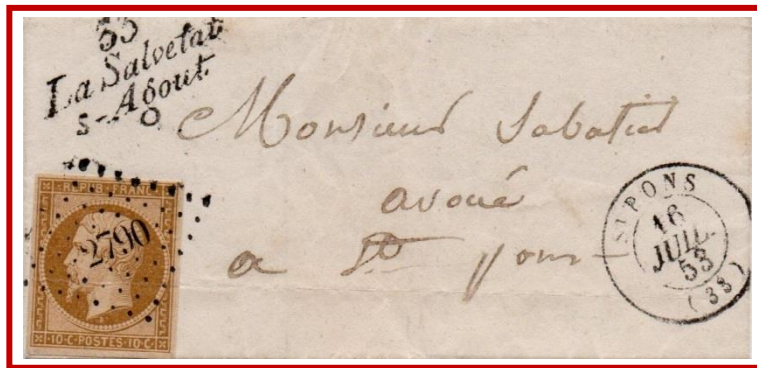 33
La Salvetat
s-Agout.
Monsieur Sabatier
avoué
a St pons
REPUB FRANC
2790
10·C·POSTES·10·C
ST PONS
16
JUIL.
53
(33)